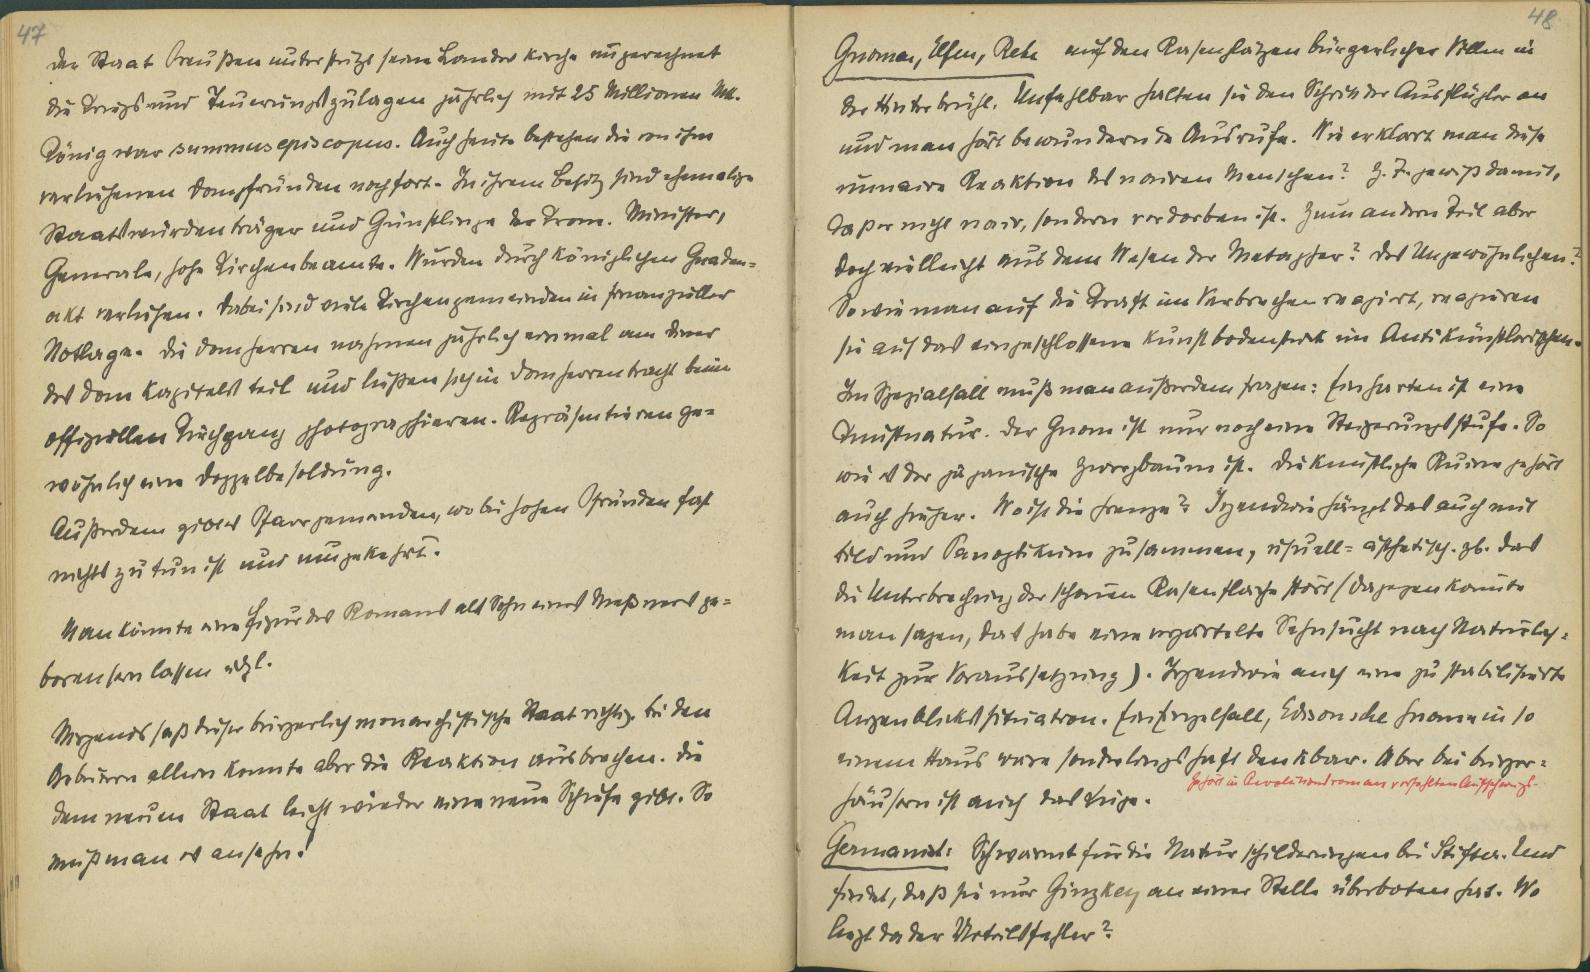 47
Der Staat Preußen unterstützt seine Landeskirche ungerechnet
die Kriegs- und Teuerungszulagen jährlich mit 25 Millionen Mk.
König war summus episcopus. Auch heute bestehen die von ihm
verliehenen Dompfründen noch fort. In ihrem Besitz sind ehemalige
Staatswürdenträger und Günstlinge der Krone. Minister,
Generale, hohe Kirchenbeamte. Wurden durch königlichen Gnaden=
akt verliehen. Dabei sind viele Kirchengemeinden in finanzieller
Notlage. Die Domherren nahmen jährlich einmal am Diner
des Domkapitels teil und ließen sich in Domherrentracht beim
offiziellen Kirchgang photographieren. Repräsentieren ge=
wöhnlich eine Doppelbesoldung.
Außerdem gibt es Pfarrgemeinden, wo bei hohen Pfründen fast
nichts zu tun ist und umgekehrt.
Man könnte eine Figur des Romans als Sohn eines Meßners ge=
boren sein lassen udgl.
Nirgends saß dieser bürgerlich monarchistische Staat richtig. Bei den
Gebieten allein konnte aber die Reaktion ausbrechen. Die
dem neuen Staat leicht wieder eine neue Schufe gibt. So
muß man es ansehn!
48
Gnomen, Elfen, Rehe auf den Rasenplätzen bürgerlicher Villen in
der Hinterbrühl. Unfehlbar halten sie den Schritt der Ausflügler an
und man hört bewundernde Ausrufe. Wie erklärt man diese
unnaive Reaktion des naiven Menschen? Z. T. gewiß damit,
daß er nicht naiv, sondern verdorben ist. Zum andern Teil aber
doch vielleicht aus dem Wesen der Metapher? Des Ungewöhnlichen?
So wie man auf die Kraft im Verbrechen reagiert, reagieren
sie auf das eingeschlossene Kunstbodenstück im Antikünstlerischen.
Im Spezialfall muß man außerdem fragen: Ein Garten ist eine
Kunstnatur. Der Gnom ist nur noch eine Steigerungsstufe. So
wie es der japanische Zwergbaum ist. Die künstliche Ruine gehört
auch hieher. Wo ist die Grenze? Irgendwie hängt das auch mit
Bild und Panoptikum zusammen, visuell=ästhetisch. zb. daß
die Unterbrechung der schönen Rasenfläche stört (dagegen könnte
man sagen, das habe eine verzärtelte Sehnsucht nach Natürlich=
keit zur Voraussetzung). Irgendwie auch eine zu stabilisierte
Augenblickssituation. Ein Einzelfall, Edisonsche Gnome in so
einem Haus wäre sonderlingshaft denkbar. Aber bei bürger=
häusern ist auch das Lüge.
Gehört in Revolutionsroman verfehlten Aufschwungs.
Germanist: Schwärmt für die Naturschilderungen bei Stifter. Und
findet, daß sie nur Ginzkey an einer Stelle überboten hat. Wo
liegt da der Urteilsfehler?